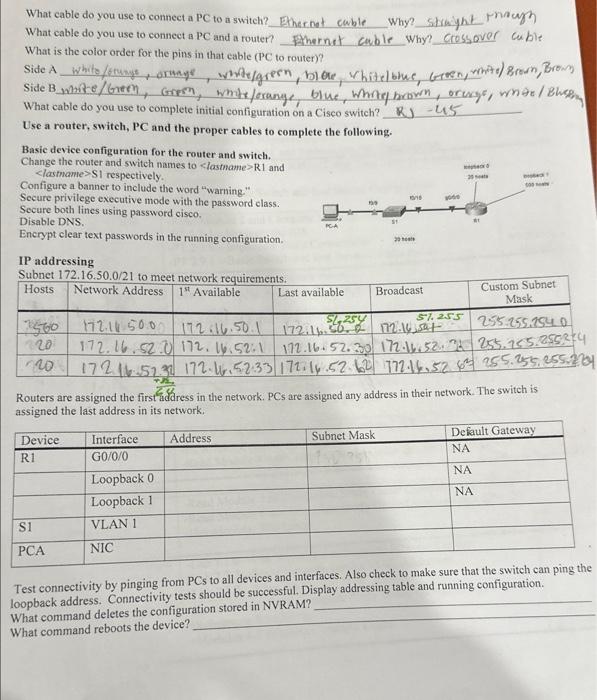 What cable do you use to connect a PC to a switch? Ethernet cable Why? straight through
What cable do you use to connect a PC and a router? Ethernet cable Why? Crossover cable
What is the color order for the pins in that cable (PC to router)?
Side A white/orange, orange, white/green, blue, white/blue, Green, white/Brown, Brown
Side B white/Green, Green, white/orange, blue, white/brown, orange, white/
What cable do you use to complete initial configuration on a Cisco switch? RJ-45
Use a router, switch, PC and the proper cables to complete the following.
Basic device configuration for the router and switch.
Change the router and switch names to <lastname>R1 and
<lastname>S1 respectively.
Configure a banner to include the word "warning."
Secure privilege executive mode with the password class.
Secure both lines using password cisco.
Disable DNS.
Encrypt clear text passwords in the running configuration.
loopback 0
20 hosts
loopback 1
500 hosts
PC-A
S1
R1
20 hosts
IP addressing
Subnet 172.16.50.0/21 to meet network requirements.
Hosts Network Address 1st Available Last available Broadcast Custom Subnet Mask
500 172.16.50.0 172.16.50.1 172.16. 51.254 172.16. 51.255 255.255.254.0
20 172.16.52.0 172.16.52.1 172.16.52.30 172.16.52. 255.255.255.224
20 172.16.52.32 172.16.52.33 172.16.52.62 172.16.52.63 255.255.255.224
Routers are assigned the first address in the network. PCs are assigned any address in their network. The switch is
assigned the last address in its network.
Device Interface Address Subnet Mask Default Gateway
R1 G0/0/0 NA
Loopback 0 NA
Loopback 1 NA
S1 VLAN 1
PCA NIC
Test connectivity by pinging from PCs to all devices and interfaces. Also check to make sure that the switch can ping the
loopback address. Connectivity tests should be successful. Display addressing table and running configuration.
What command deletes the configuration stored in NVRAM?
What command reboots the device?